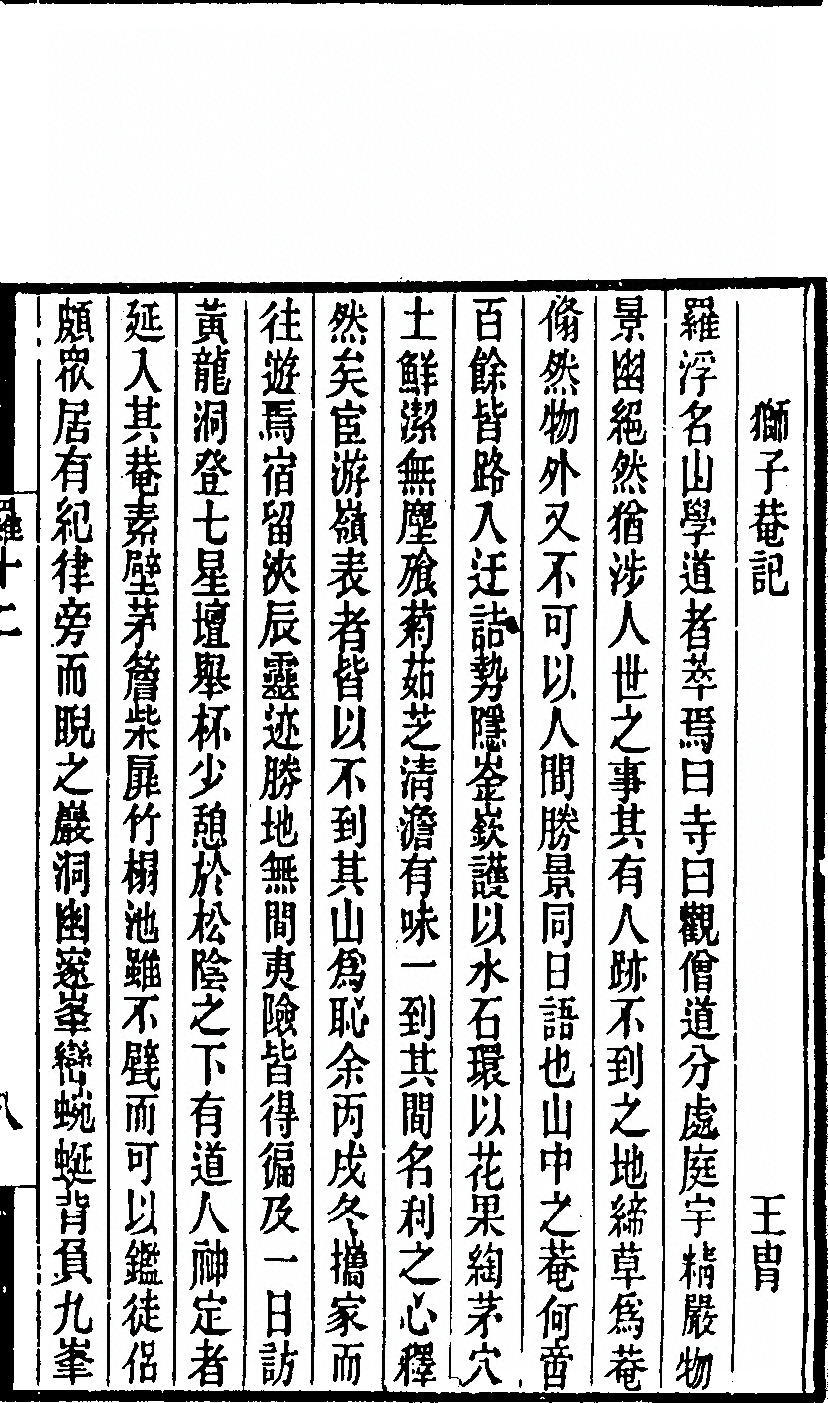 獅子菴記　王胄
羅浮名山學道者萃焉曰寺曰觀僧道分處庭宇精嚴物
景幽絕然猶涉人世之事其有人跡不到之地締草爲菴
翛然物外又不可以人間勝景同日語也山中之菴何啻
百餘皆路入迂詰勢隱崟嶔護以水石環以花果綯茅穴
土鮮潔無塵飱菊茹芝清澹有味一到其間名利之心釋
然矣宦游嶺表者皆以不到其山爲恥余丙戌冬攜家而
往遊焉宿留浹辰靈迹勝地無間夷險皆得徧及一日訪
黃龍洞登七星壇舉杯少憩於松陰之下有道人神定者
延入其菴素壁茅簷柴扉竹榻池雖不甓而可以鑑徒侶
頗眾居有紀律旁而睨之巖洞幽邃峯巒蜿蜒背負九峯
十二
八